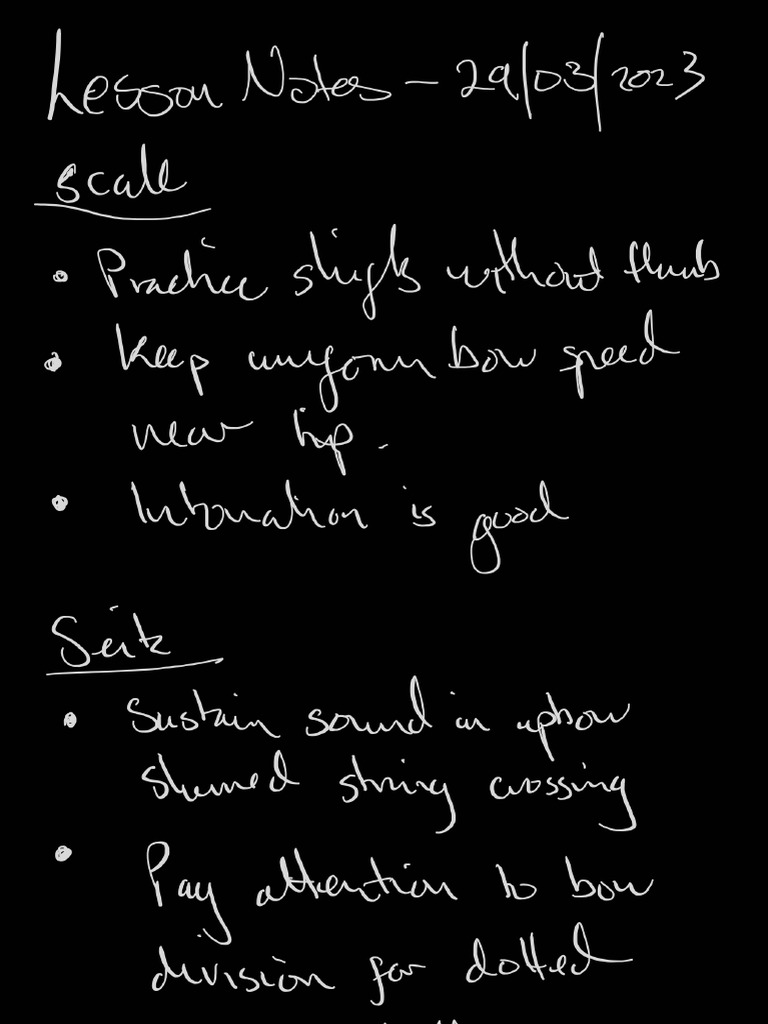 Lesson Notes - 29/03/2023
Scale
• Practice shifts without thumb
• Keep uniform bow speed
near tip.
• Intonation is good
Seitz
• Sustain sound in upbow
slurred string crossing
• Pay attention to bow
division for dotted